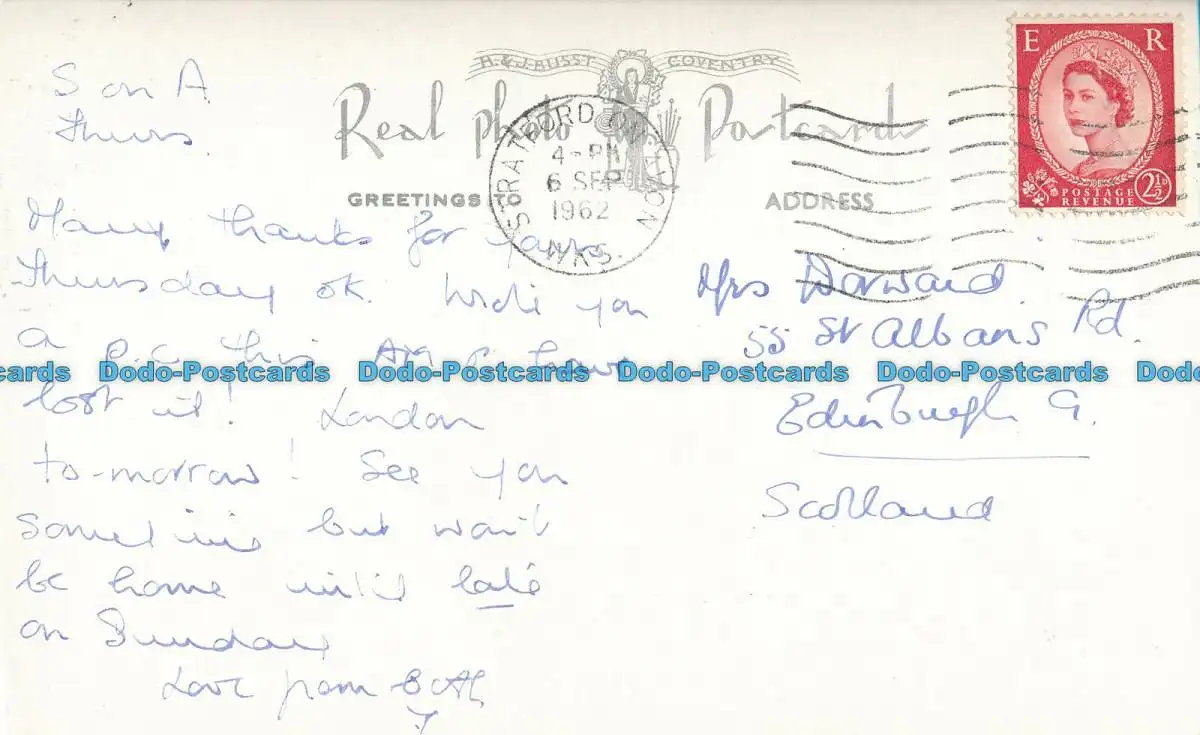 H. & J. BUSST COVENTRY
Real photo Postcards
GREETINGS TO
ADDRESS
STRATFORD ON AVON
4 - PM
6 SEP
1962
WKS.
E R
POSTAGE
REVENUE
2½D
S on A
Thurs.
Many thanks for yours
Thursday OK. Wrote you
a p.c. this AM & have
lost it! London
to-morrow! See you
sometime but won't
be home until late
on Sunday
Love from Both
Mrs Dorward.
55 St Albans Rd.
Edinburgh 9.
Scotland
Dodo-Postcards Dodo-Postcards Dodo-Postcards Dodo-Postcards